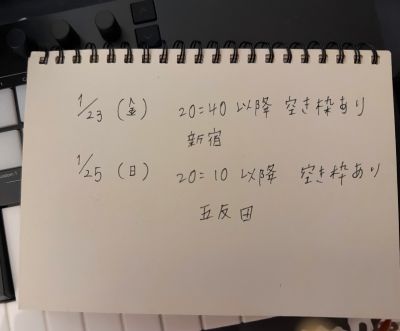 1/23 (金) 20:40 以降 空き枠あり
新宿
1/25 (日) 20:10 以降 空き枠あり
五反田